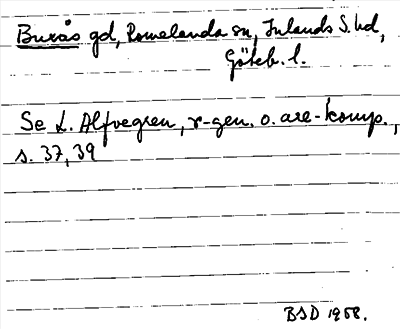 Burås gd, Romelanda sn, Inlands S. hd,
Göteb. l.
Se L. Alfvegren, r-gen. o. are-komp.,
s. 37, 39
BSD 1968.